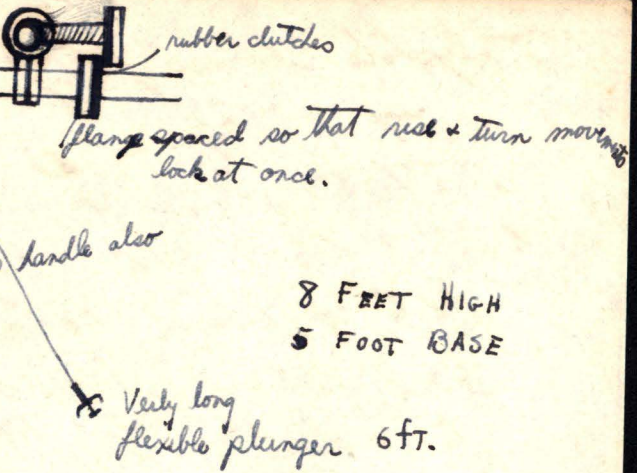 rubber clutches
flange spaced so that rise & turn movements
lock at once.
handle also
8 FEET HIGH
5 FOOT BASE
Verly long
flexible plunger 6 fT.